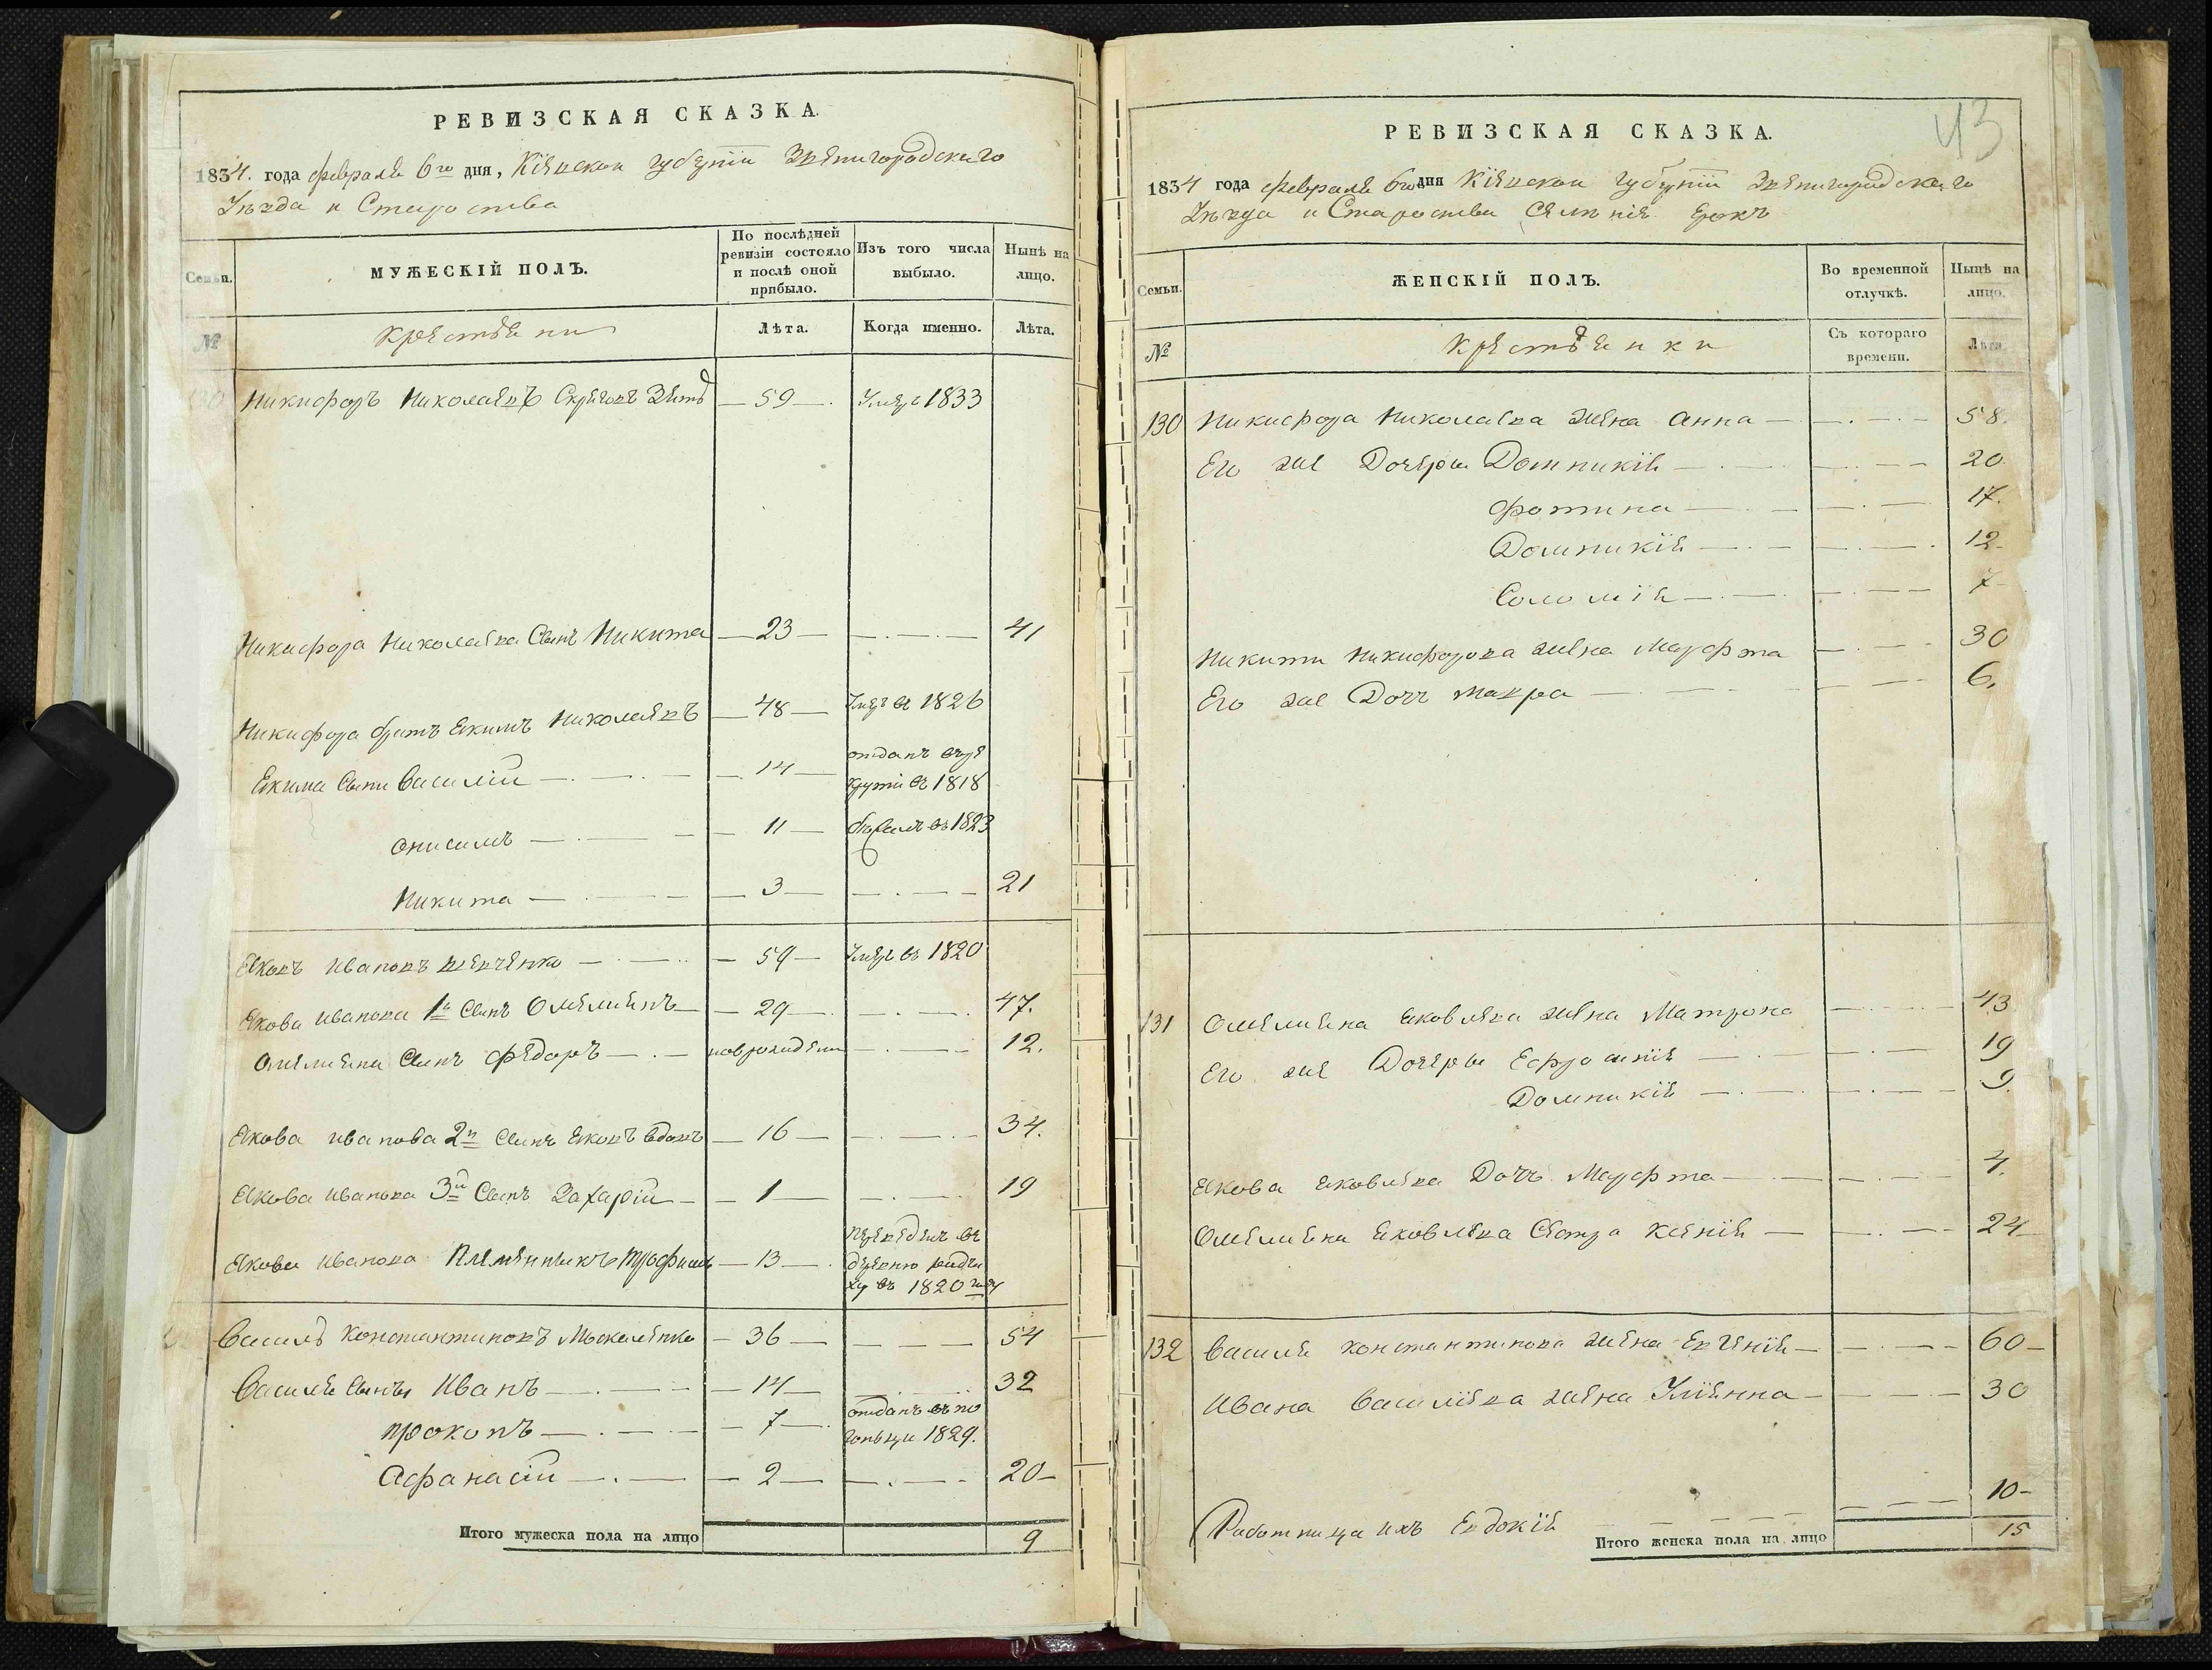 РЕВИЗСКАЯ СКАЗКА.
1834. года февраля 6го дня, Кіевской губерніи Звенигородскаго
Уѣзда и Староства
Семьи.
МУЖЕСКІЙ ПОЛЪ.
По послѣдней ревизіи состояло и послѣ оной прибыло.
Изъ того числа выбыло.
Нынѣ на лицо.
№
Крестьяни
Лѣта.
Когда именно.
Лѣта.
130 Никифоръ Николаевъ Зять — 59 — Умеръ 1833
Никифора Николаева Сынъ Никита — 23 — 41
Никифора братъ Екимъ Николаевъ — 48 — Умеръ въ 1826
Екима Сыни Василій — 14 — отданъ въ ре
крути въ 1818
Онисимъ — 11 — въ 1823
Никита — 3 — 21
Яковъ Ивановъ Шевченко — 59 — Умеръ въ 1820
Якова Иванова 1й Сынъ Омелиянъ — 29 — 47.
Омелияна Сынъ Федоръ — новрожденъ — 12.
Якова Иванова 2й Сынъ Яковъ вдовъ — 16 — 34.
Якова Иванова 3й Сынъ Захарій — 1 — 19
Якова Иванова Племянникъ Трофимъ — 13 — переведенъ въ
деревню
въ 1820 году
Василь Константиновъ Москаленко — 36 — 54
Василя Сынъи Иванъ — 14 — 32
Прокопъ — 7 — отданъ въ по
гонци 1829.
Афанасій — 2 — 20
Итого мужеска пола на лицо 9
43
РЕВИЗСКАЯ СКАЗКА.
1834 года февраля 6го дня Кіевской губерніи Звенигородскаго
Уѣзда и Староства Селѣнія Ерокъ
Семьи.
ЖЕНСКІЙ ПОЛЪ.
Во временной отлучкѣ.
Нынѣ на лицо.
№
Крестьянки
Съ котораго времени.
Лѣта
130 Никифора Николаева жена Анна — 58.
Его же Дочери Домникія — 20.
Фотина — 17.
Домникія — 12
Соломія — 7
Никити Никифорова жена Марфта — 30
Его же Дочъ Мавра — 6.
131 Омелияна Яковлева жена Матрона — 43
Его же Дочери Ефросинія — 19
Домникія — 9.
Якова Яковлева Дочъ Марфта — 4.
Омелияна Яковлева Сестра Ксенія — 24
132 Василя Константинова жена Евгенія — 60
Ивана Василіева жена Уліянна — 30
Работница ихъ Евдокія — 10
Итого женска пола на лицо 15